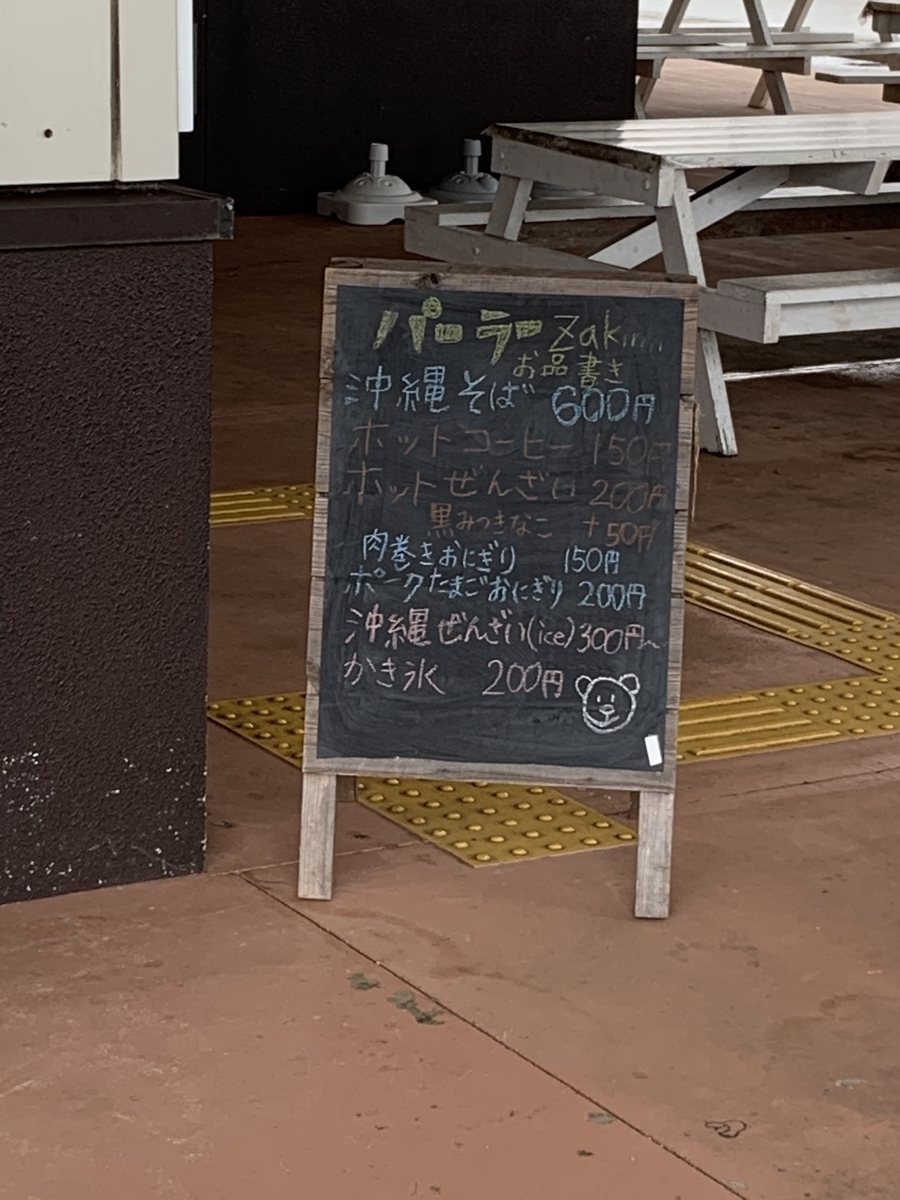 パーラー Zakimi
お品書き
沖縄そば 600円
ホットコーヒー 150円
ホットぜんざい 200円
黒みつきなこ +50円
肉巻きおにぎり 150円
ポークたまごおにぎり 200円
沖縄ぜんざい(ice)300円〜
かき氷 200円